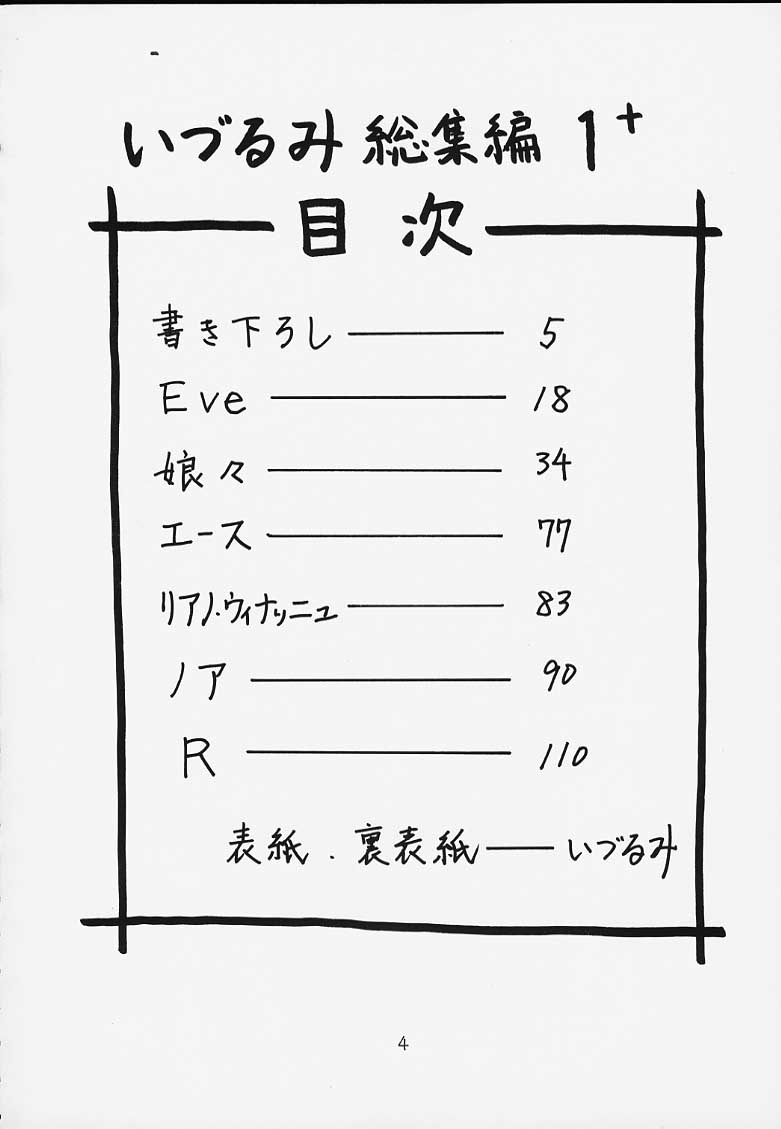 いづるみ 総集編 1+
目次
書き下ろし ——— 5
Eve ——— 18
娘々 ——— 34
エース ——— 77
リアノ・ウィナッニュ ——— 83
ノア ——— 90
R ——— 110
表紙・裏表紙 —— いづるみ
4